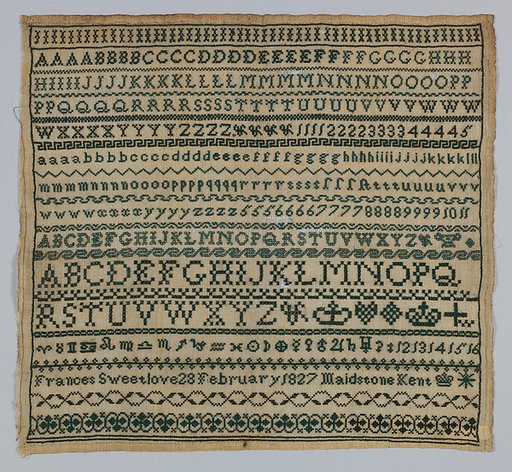 AAAABBBBCCCCDDDDEEEEFFFFGGGGHHH
HIIIIJJJJKKKKLLLLMMMMNNNNOOOOPP
PPQQQQRRRRSSSSTTTTUUUUVVVVWWW
WXXXXYYYYZZZZ&&&&11112222333344445
aaaabbbbccccddddeeeeffffgggghhhhiiiijjjjkkkklll
mmmmnnnnooooppppqqqqrrrrssssſſſſttttuuuuvvv
vwwwwxxxxyyyyzzzz5556666777788889999 10 11
ABCDEFGHIJKLMNOPQRSTUVWXYZ&
ABCDEFGHIJKLMNOPQ
RSTUVWXYZ&
♈♉♊♋♌♍♎♏♐♑♒♓ 12 13 14 15 16
Frances Sweetlove 28 February 1827 Maidstone Kent